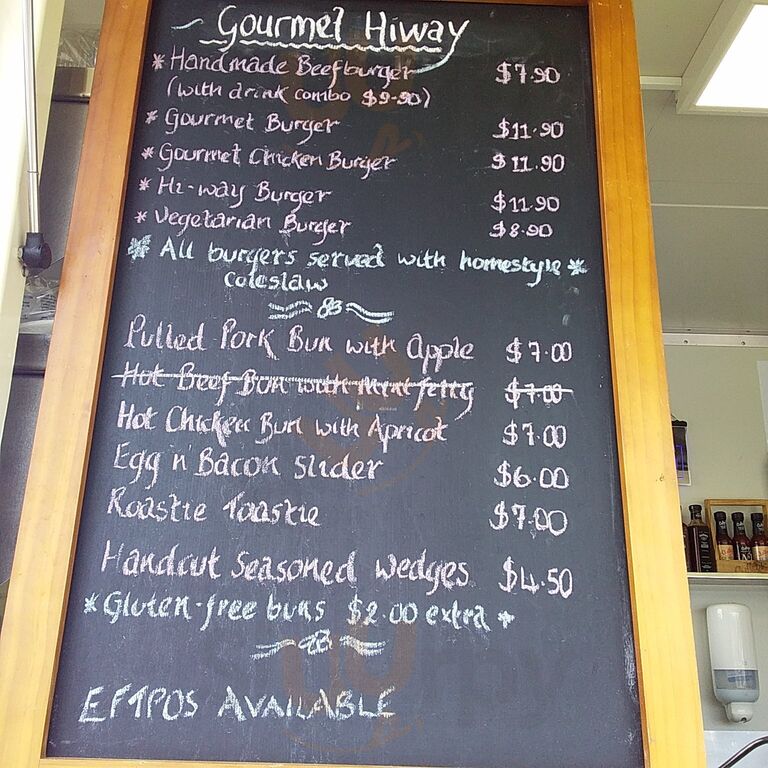 Gourmet Hiway
* Handmade Beefburger $7.90
(with drink combo $9.90)
* Gourmet Burger $11.90
* Gourmet Chicken Burger $11.90
* Hi-way Burger $11.90
* Vegetarian Burger $8.90
* All burgers served with homestyle *
coleslaw
Pulled Pork Bun with Apple $7.00
Hot Beef Bun with $7.00
Hot Chicken Bun with Apricot $7.00
Egg n Bacon Slider $6.00
Roastie Toastie $7.00
Handcut Seasoned Wedges $4.50
* Gluten-free buns $2.00 extra +
EFTPOS AVAILABLE